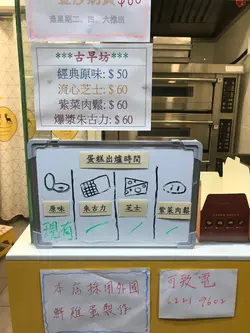 逢星期二、四、六推出
***古早坊***
經典原味: $50
流心芝士: $60
紫菜肉鬆: $60
爆漿朱古力: $60
蛋糕出爐時間
原味 朱古力 芝士 紫菜肉鬆
現有
本店採用外國
新雞蛋製作
可致電
6221 9602